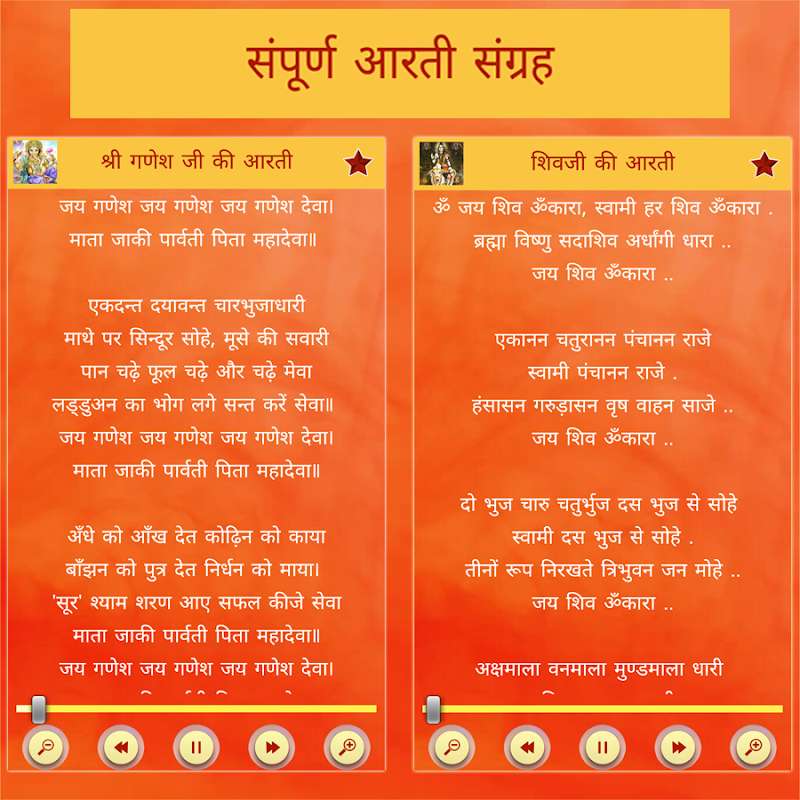 संपूर्ण आरती संग्रह
श्री गणेश जी की आरती
जय गणेश जय गणेश जय गणेश देवा।
माता जाकी पार्वती पिता महादेवा॥
एकदन्त दयावन्त चारभुजाधारी
माथे पर सिन्दूर सोहे, मूसे की सवारी
पान चढ़े फूल चढ़े और चढ़े मेवा
लड्डुअन का भोग लगे सन्त करें सेवा॥
जय गणेश जय गणेश जय गणेश देवा।
माता जाकी पार्वती पिता महादेवा॥
अँधे को आँख देत कोढ़िन को काया
बाँझन को पुत्र देत निर्धन को माया।
'सूर' श्याम शरण आए सफल कीजे सेवा
माता जाकी पार्वती पिता महादेवा॥
जय गणेश जय गणेश जय गणेश देवा।
शिवजी की आरती
ॐ जय शिव ॐकारा, स्वामी हर शिव ॐकारा .
ब्रह्मा विष्णु सदाशिव अर्धांगी धारा ..
जय शिव ॐकारा ..
एकानन चतुरानन पंचानन राजे
स्वामी पंचानन राजे .
हंसासन गरुड़ासन वृष वाहन साजे ..
जय शिव ॐकारा ..
दो भुज चारु चतुर्भुज दस भुज से सोहे
स्वामी दस भुज से सोहे .
तीनों रूप निरखते त्रिभुवन जन मोहे ..
जय शिव ॐकारा ..
अक्षमाला वनमाला मुण्डमाला धारी